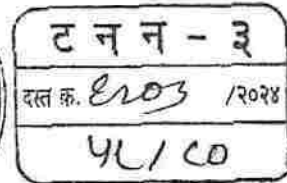 ट न न - ३
दस्त क्र. ६२०३ /२०२४
५८ / ८०